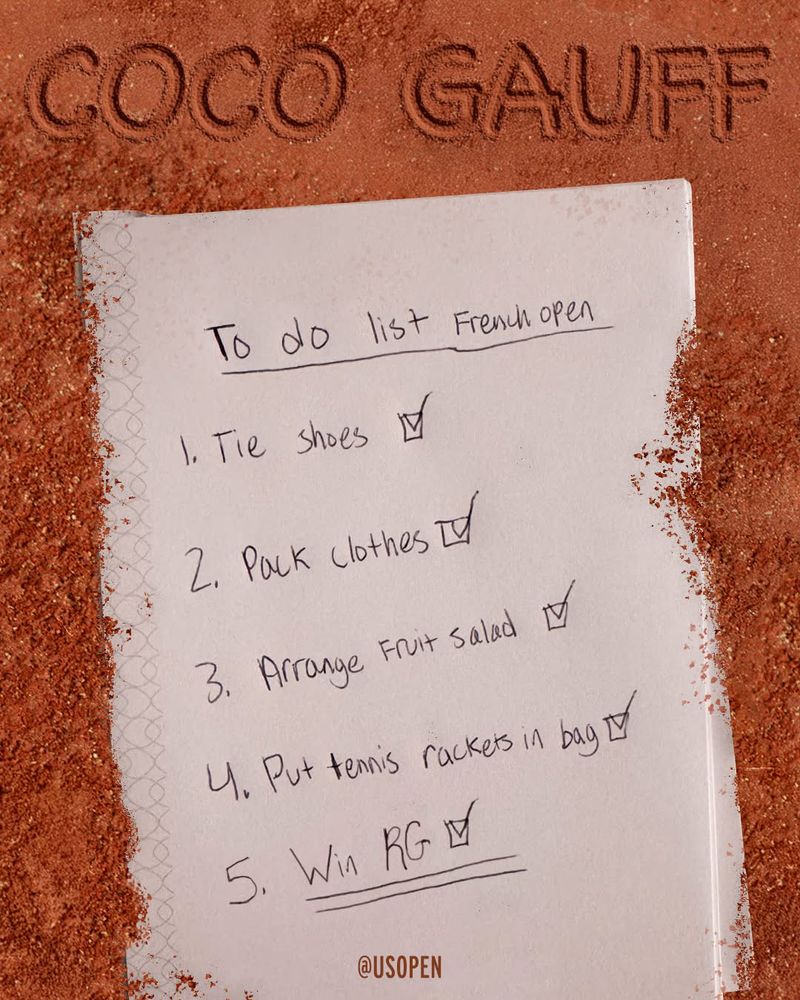 COCO GAUFF
To do list French open
1. Tie shoes ☑
2. Pack clothes ☑
3. Arrange Fruit salad ☑
4. Put tennis rackets in bag ☑
5. Win RG ☑
@USOPEN